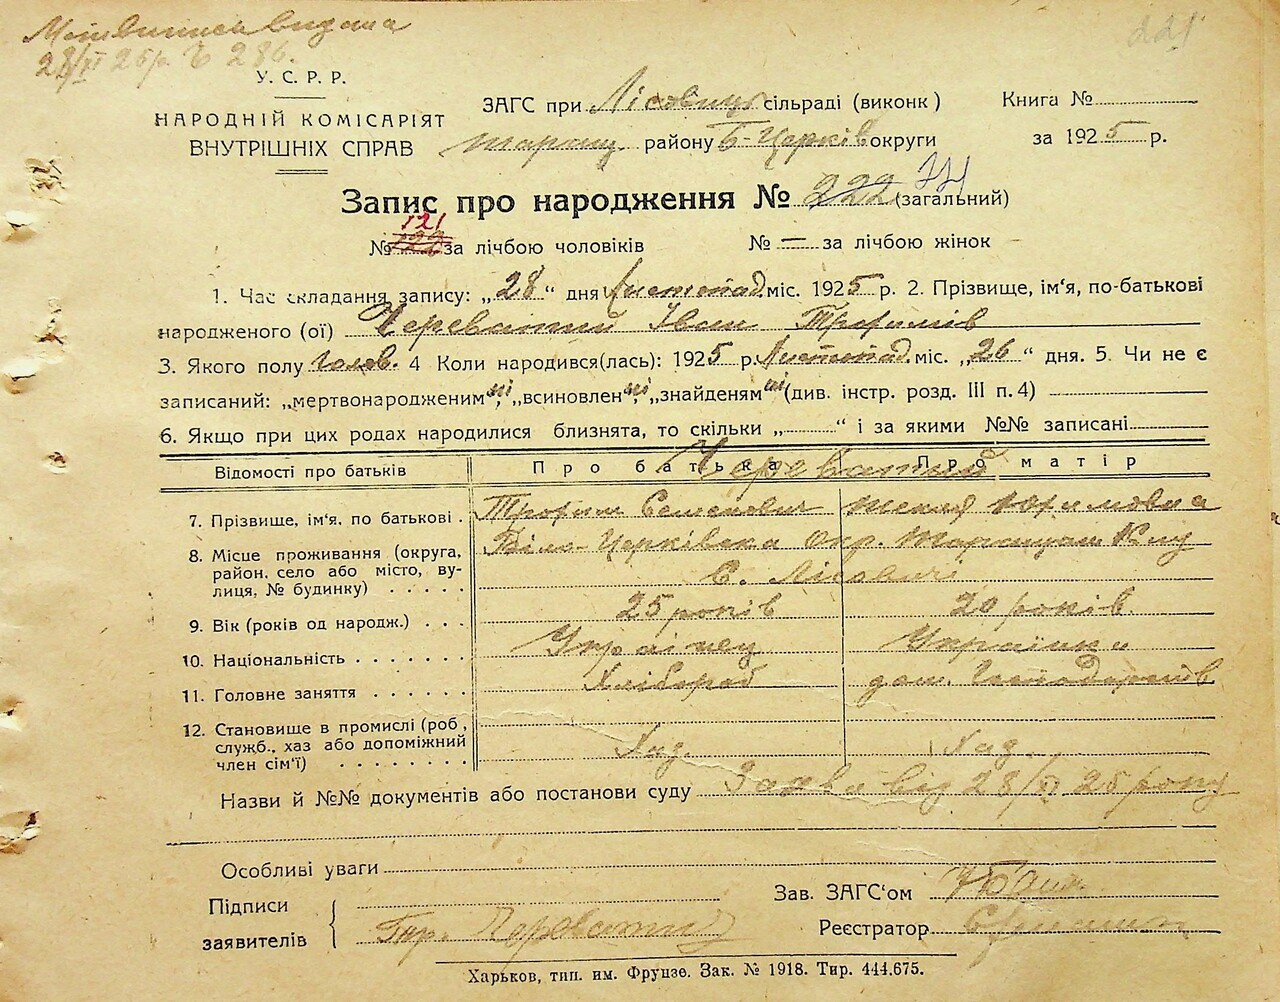 видана
28/XI 25р. № 286.
221
У. С. Р. Р.
НАРОДНІЙ КОМІСАРІЯТ
ВНУТРІШНІХ СПРАВ
ЗАГС при Лісовиц. сільраді (виконк )
Таращ. району Б-Церків округи
Книга №
за 1925 р.
Запис про народження № 222 (загальний)
121
№ за лічбою чоловіків № — за лічбою жінок
1. Час складання запису: „28“ дня Листопад міс. 1925 р. 2. Прізвище, ім‘я, по-батькові
народженого (ої) Череватий Іван Трофимів
3. Якого полу чолов. 4 Коли народився(лась): 1925 р. Листопад. міс. „26“ дня. 5. Чи не є
записаний: „мертвонародженим“ ні, „всиновлен“ ні, „знайденям“ ні (див. інстр. розд. III п. 4)
6. Якщо при цих родах народилися близнята, то скільки „ “ і за якими №№ записані
Відомості про батьків Про батька Про матір
Череватий
7. Прізвище, ім‘я, по батькові . Трофим Семенович Текля Юримовна
8. Місце проживання (округа, район, село або місто, вулиця, № будинку) . . . . . Біло-Церківска Окр. Таращан.
С. Лісовичі
9. Вік (років од народж.) . . . 25 років 20 років
10. Національність . . . . . . . Українец Українка
11. Головне заняття . . . . . . Хлібороб дом. Господарств
12. Становище в промислі (роб , служб., хаз або допоміжний член сім‘ї) . . . . . . . . Хаз. Хаз
Назви й №№ документів або постанови суду Заява від 28/XI 25 року
Особливі уваги
Підписи
заявителів
Череватий
Зав. ЗАГС‘ом
Реєстратор
Харьков, тип. им. Фрунзе. Зак. № 1918. Тир. 444.675.